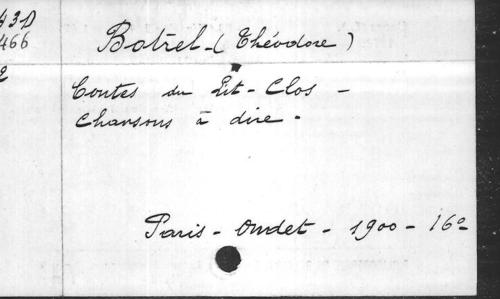 43D
466
Botrel - (Théodore)
Contes du Lit - Clos -
Chansons à dire -
Paris - Ondet - 1900 - 16º